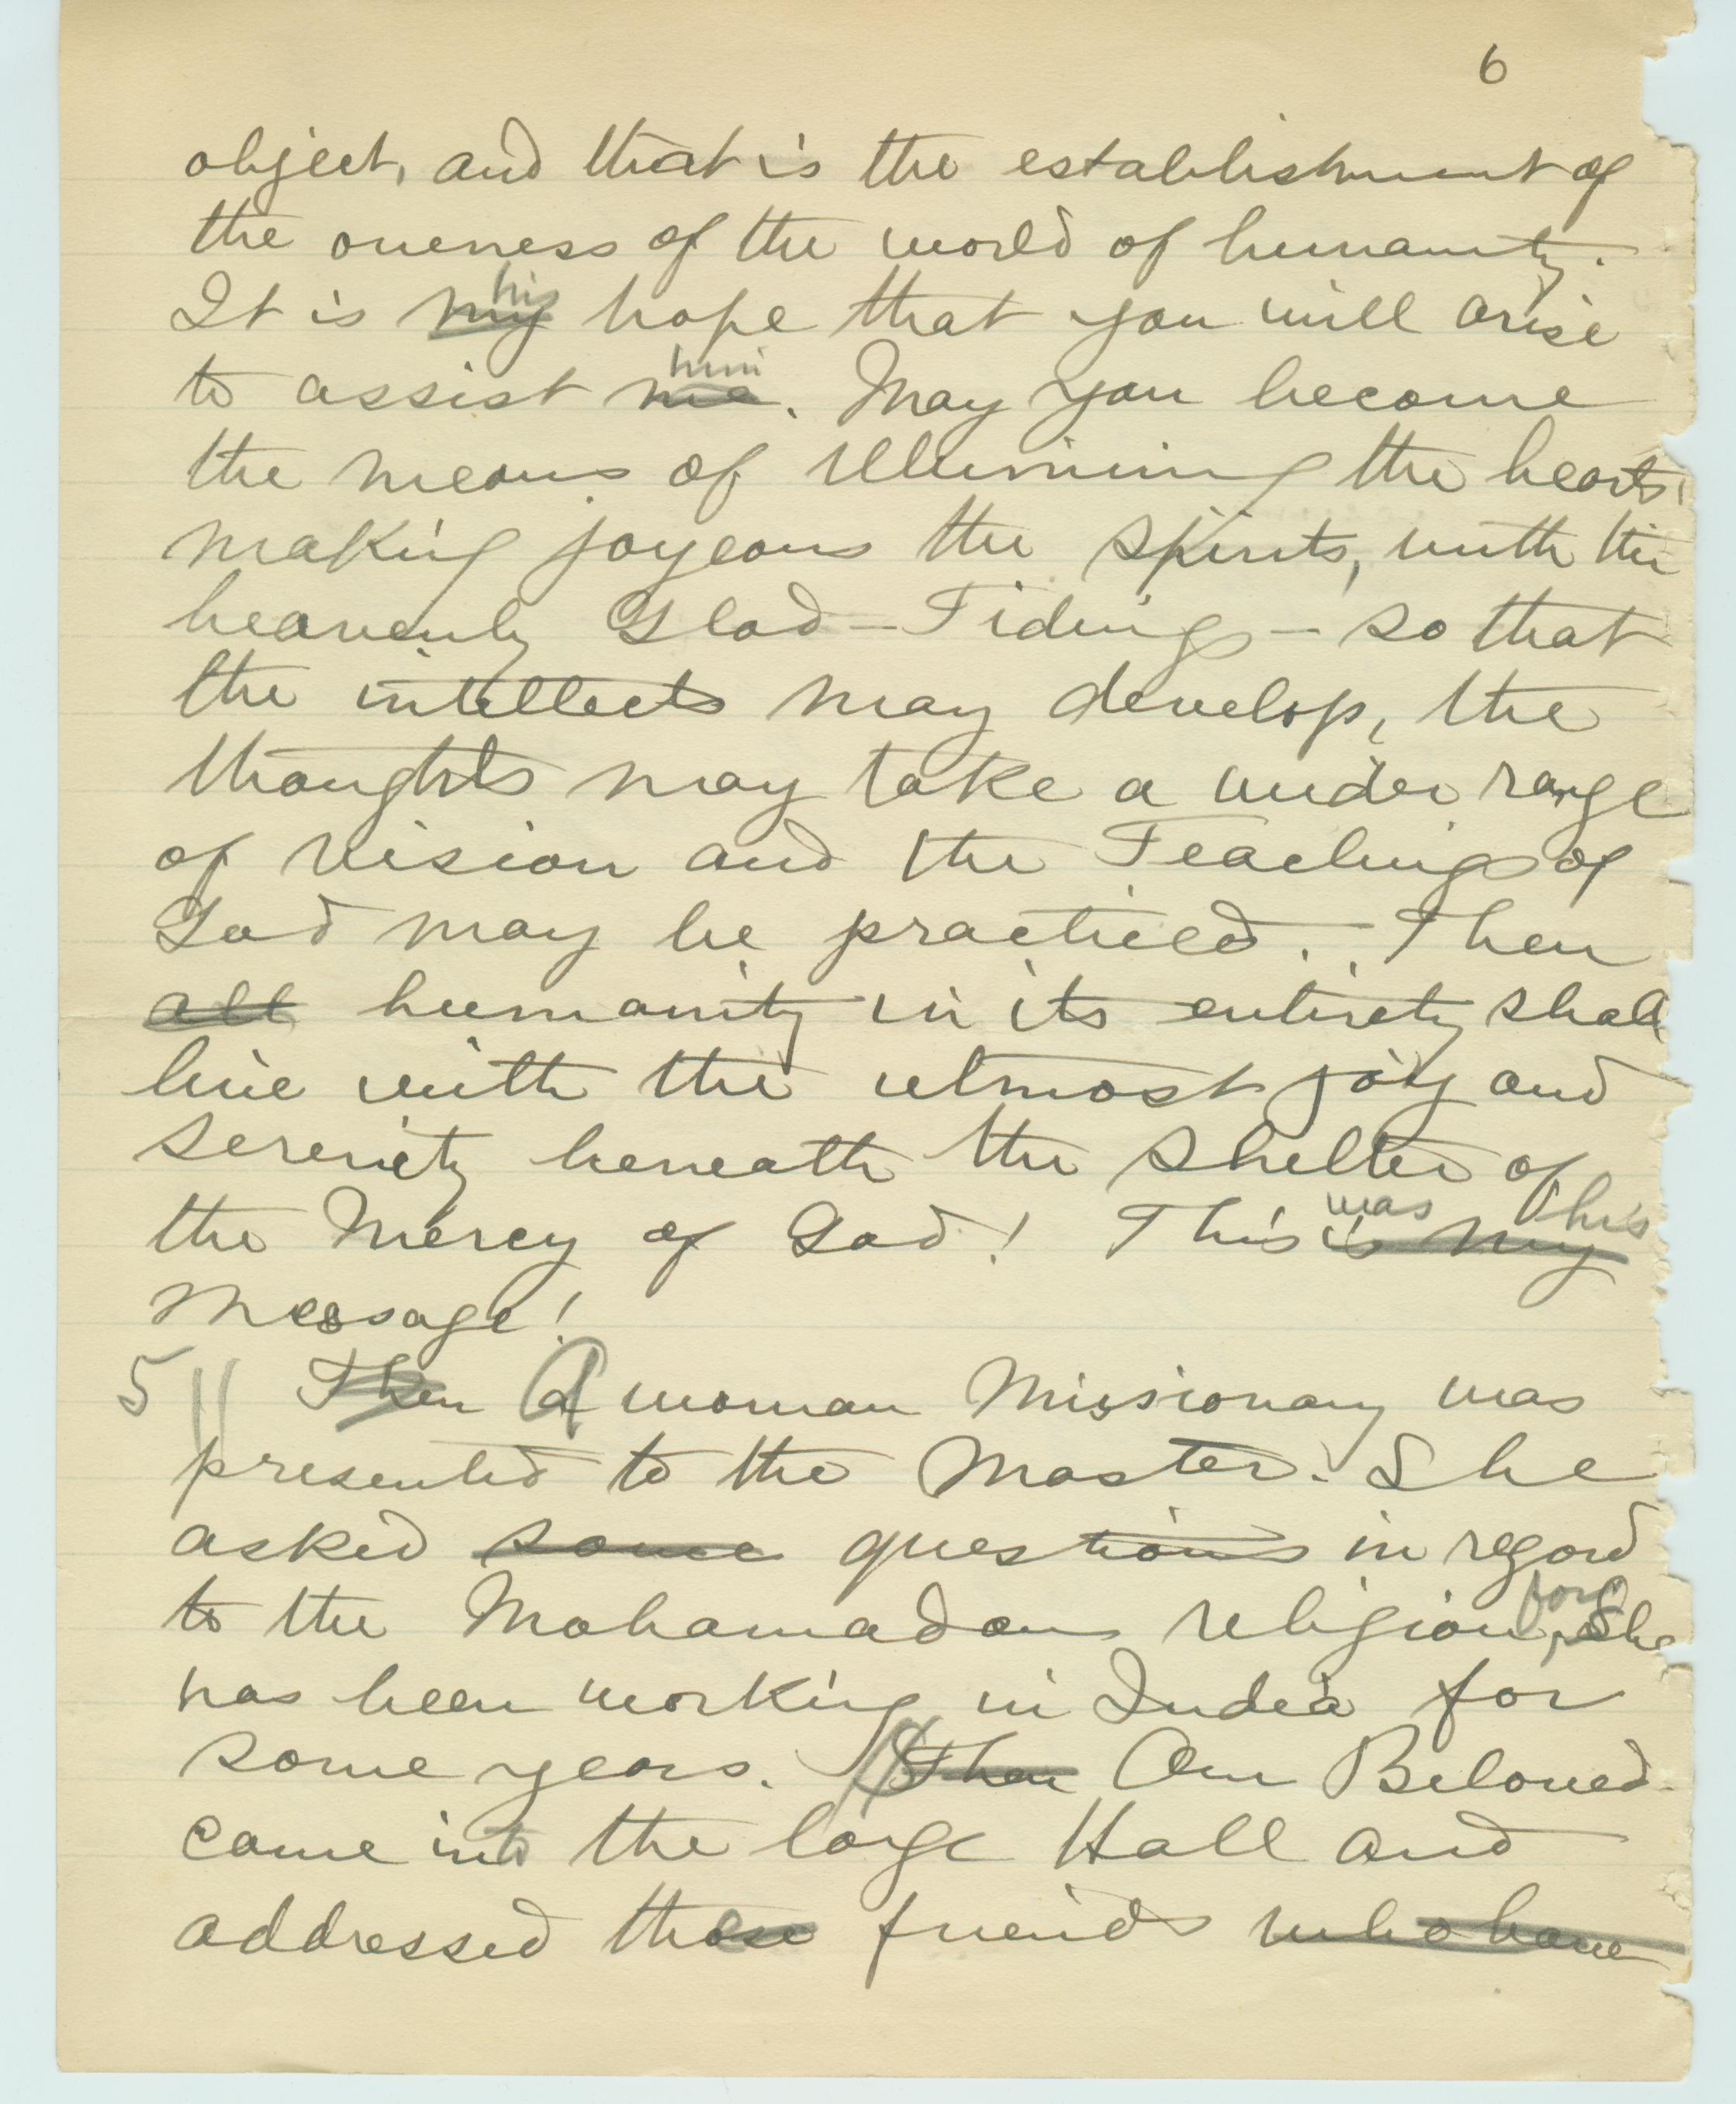 6
object, and that is the establishment of
the oneness of the world of humanity.
It is my his hope that you will arise
to assist me him. May you become
the means of illumining the hearts,
making joyeous the spirits, with the
heavenly Glad-Tidings - so that
the intellects may develop, the
thoughts may take a wider range
of vision and the Teachings of
God may be practiced. Then
all humanity in its entirety shall
live with the utmost joy and
serenity beneath the shelter of
the Mercy of God! This is was my his
Message!
5 Then A woman Missionary was
presented to the Master. She
asked some questions in regard
to the Mohamadan religion, for She
has been working in India for
some years. Then Our Beloved
came into the large Hall and
addressed those friends who have